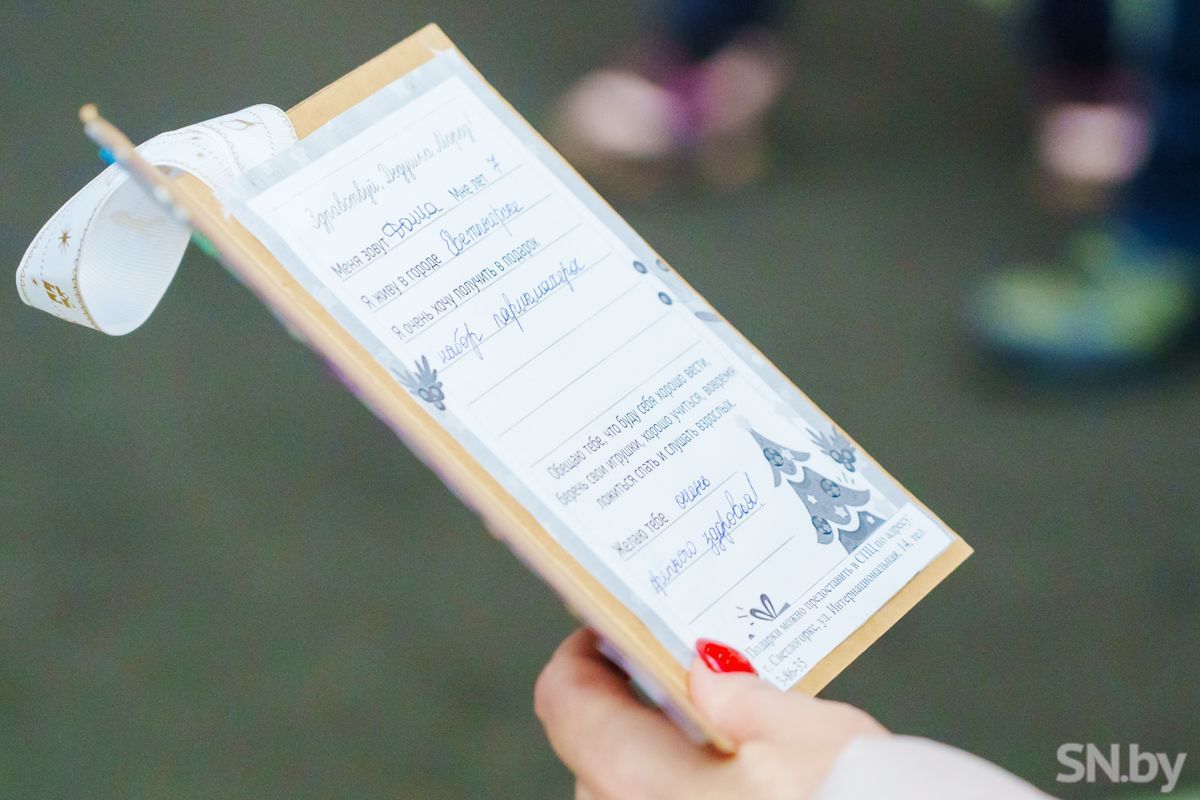 Здравствуй, Дедушка Мороз!
Меня зовут Даша Мне лет 7
Я живу в городе Светлогорске
Я очень хочу получить в подарок
набор парикмахера
Обещаю тебе, что буду себя хорошо вести,
беречь свои игрушки, хорошо учиться, вовремя
ложиться спать и слушать взрослых.
Желаю тебе очень
много здоровья!
Подарки можно предоставить в СПЦ по адресу:
г. Светлогорск, ул. Интернациональная, 14, тел.
3-86-35
SN.by